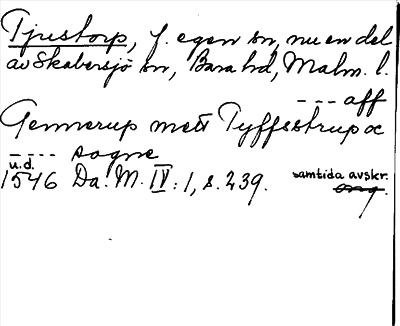 Tjustorp, f. egen sn, nu en del
av Skabersjö sn, Bara hd, Malm. l.
--- aff
Gennerup mett Tyffsstrup oc
---- sogne
u.d.
1546 Da. M. IV: 1, s. 239. samtida avskr.
orig.